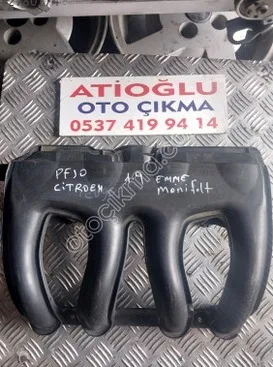 ATİOĞLU
OTO ÇIKMA
0537 419 94 14
PEJO 1.9 EMME
CİTROEN monifolt
otocikma.com